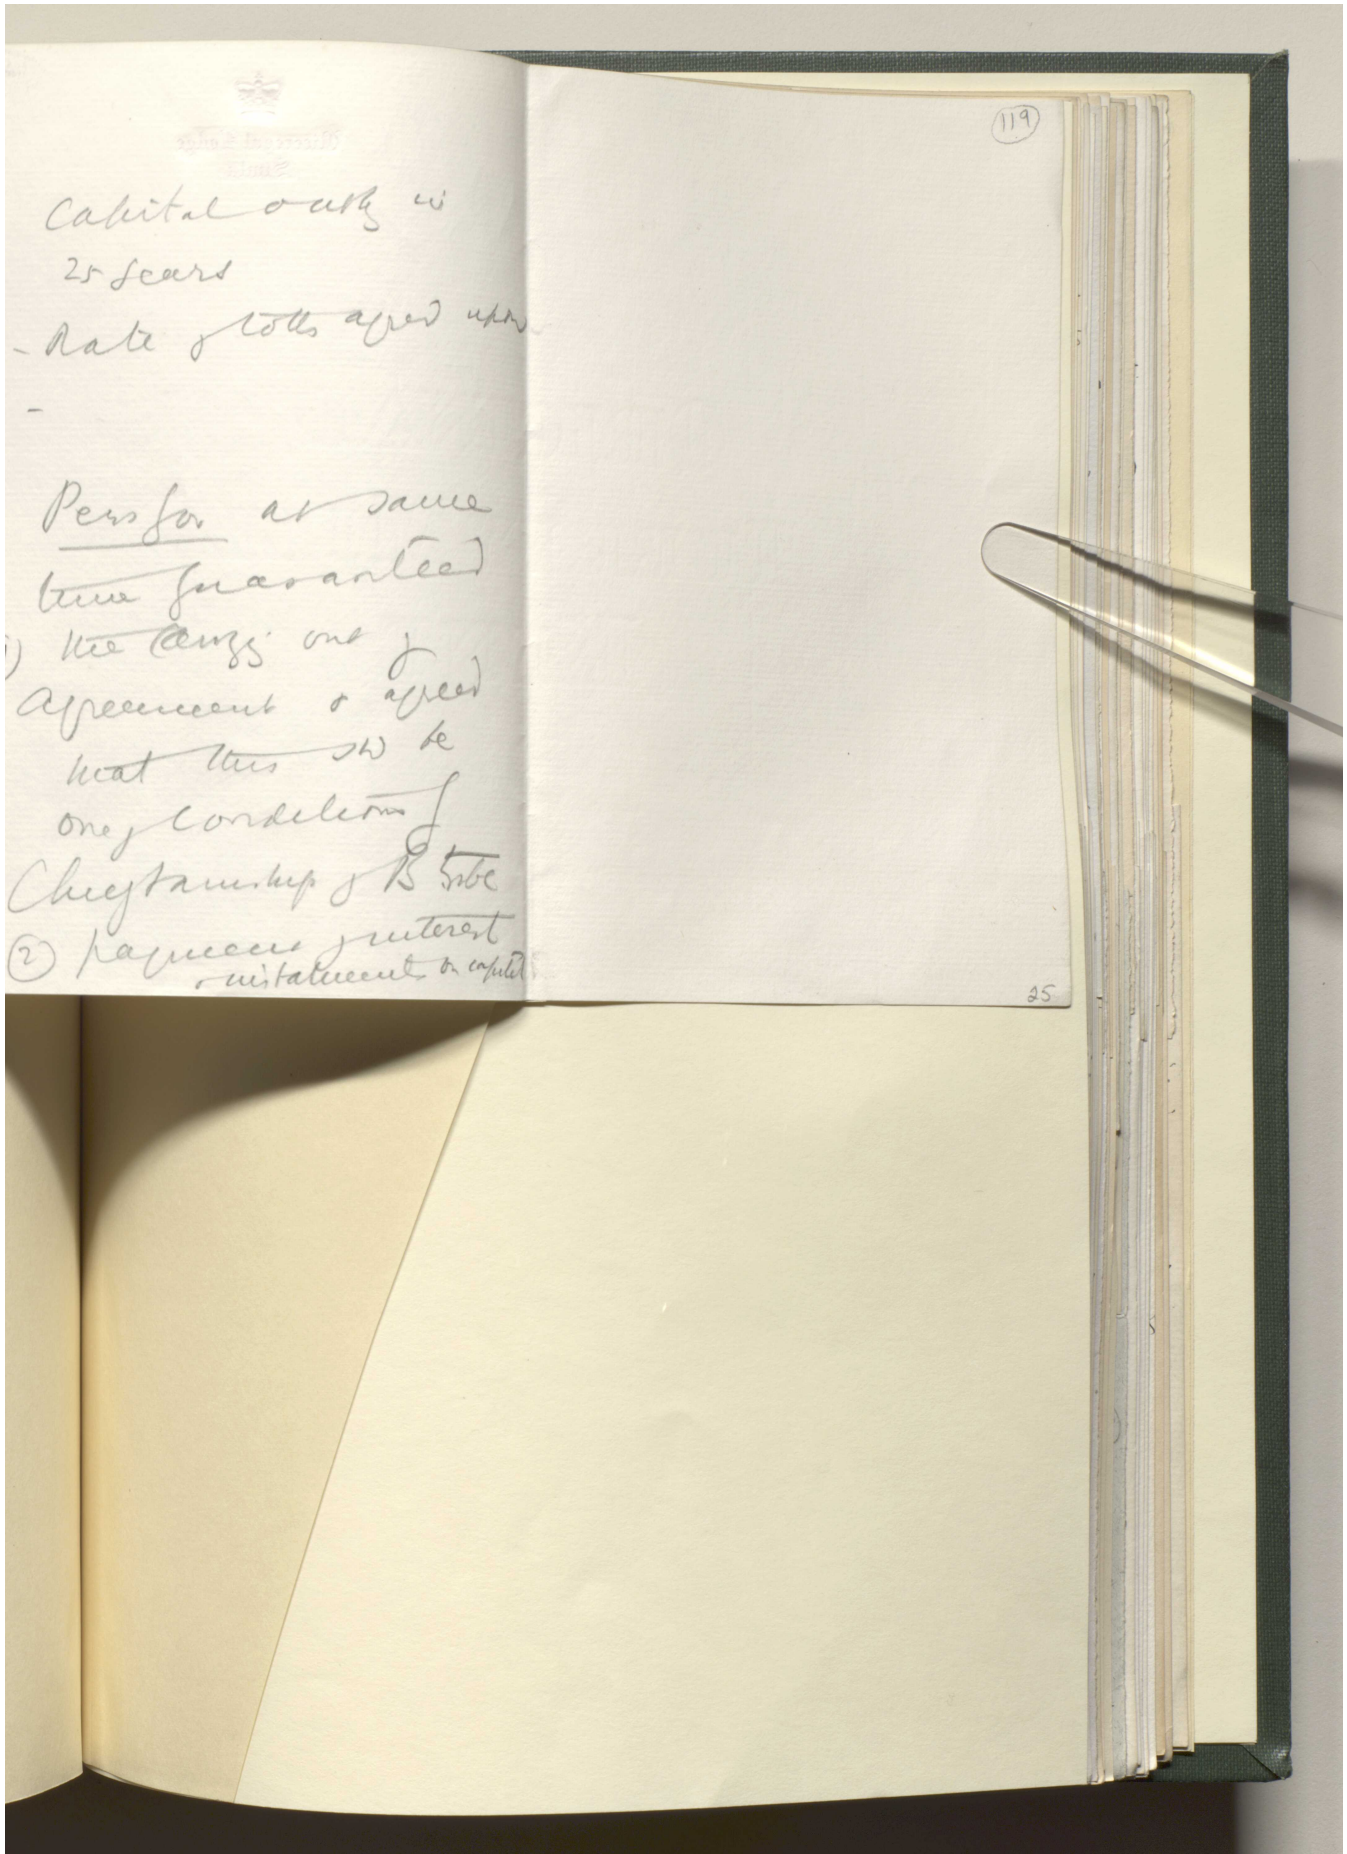 Capital outlay in
25 years
- Rate of tolls agreed upon
-
Pers Gov at same
time guaranteed
) the carrying out of
Agreement & agreed
that this shd be
one of conditions of
Chieftainship of B tribe
(2) payment of interest
& instalments on capital
119
25